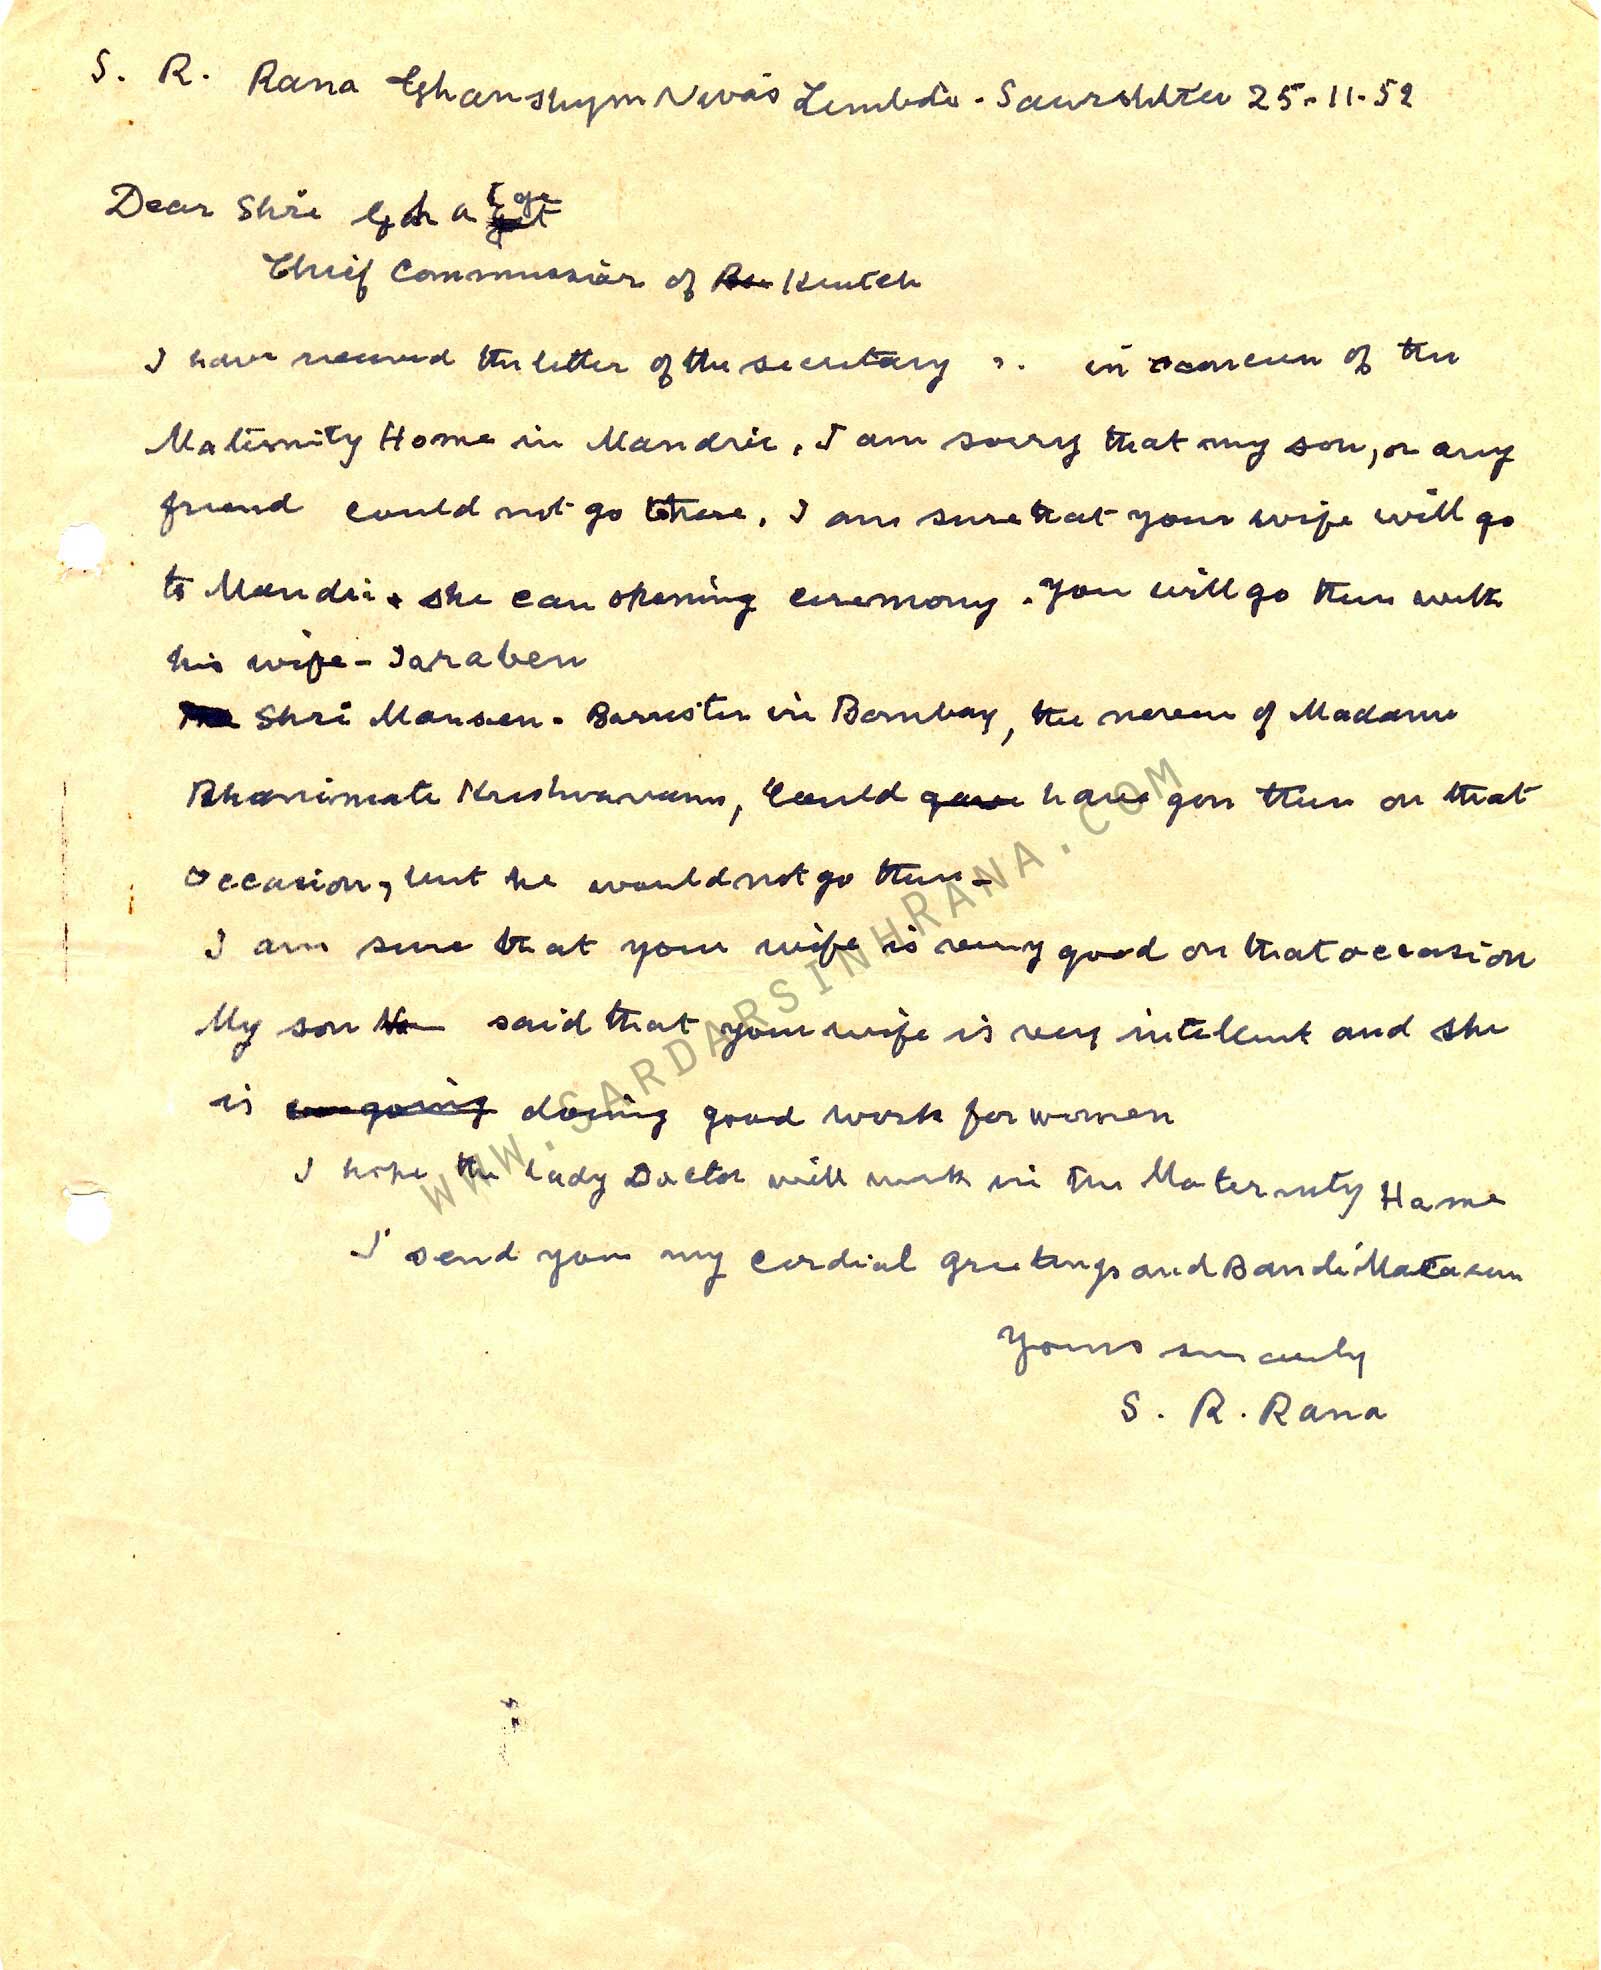 S. R. Rana Ghanshym Nivas Limbdi - Saurshtra 25-11-52
Dear Shri
Chief Commissiar of Kutch
I have received the letter of the secretary in concern of the
Maternity Home in Mandvi. I am sorry that my son, or any
friend could not go there. I am sure that your wife will go
to Mandvi & she can opening ceremony. You will go there with
his wife - Taraben
Shri Mansen - Barrister in Bombay, the of Madame
Bhanimate Krishvavarma, Could have gon there on that
occasion, but he would not go there -
I am sure that your wife is very good on that occasion
My son said that your wife is very intellent and she
is doeing good work for women
I hope the Lady Doctor will work in the Maternity Home
I send you my cordial greetings and Bande Mataram
Yours sincerely
S. R. Rana
WWW.SARDARSINHRANA.COM